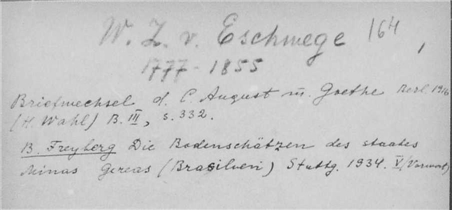 W. L. v. Eschwege 164
1777 - 1855
Briefwechsel d. C. August m. Goethe Berl 1916
(H. Wahl) B. III, s. 332.
B. Freyberg Die Bodenschätzen des staates
Minas Gereas (Brasilien) Stuttg. 1934. V (Vorwort)